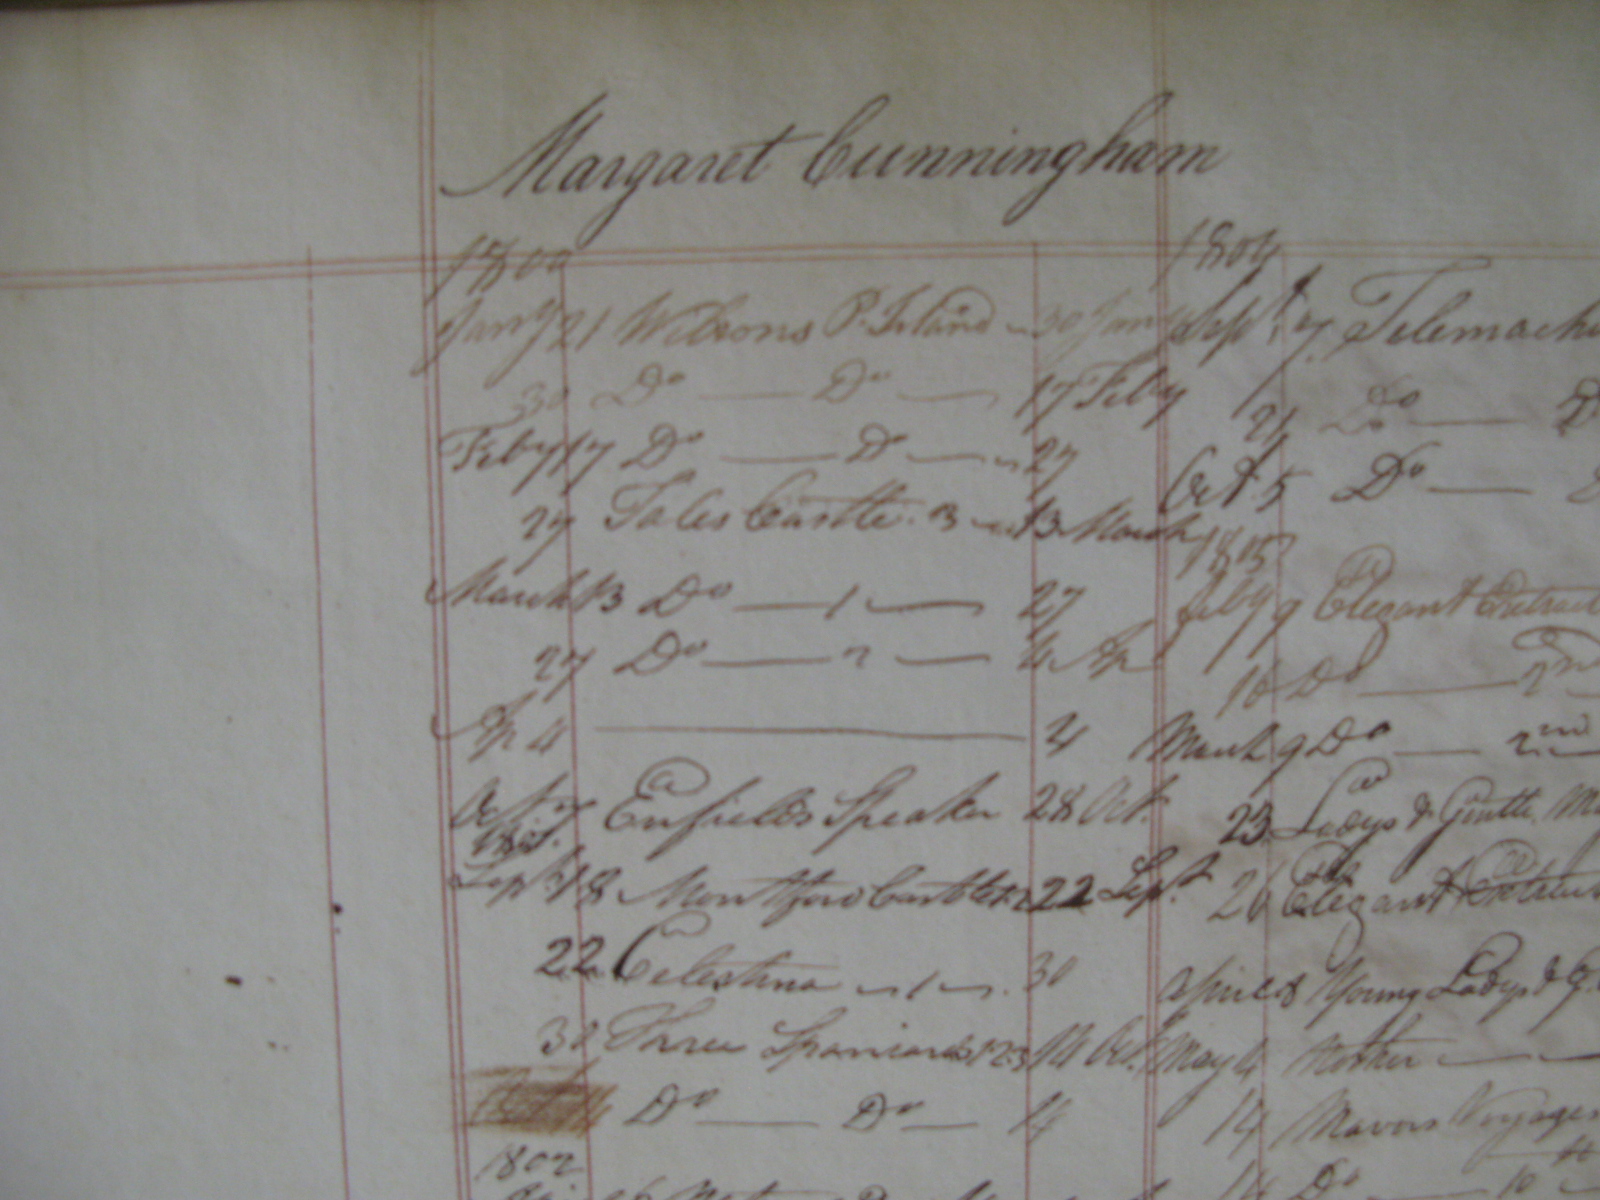 Margaret Cunningham
1800
Jany 21 Wilsons P. Island 30 Jany
30 Do — Do — 17 Feby
Feby 17 Do — Do — 27
27 Tales Castle . 3 13 March
March 13 Do — 1 — 27
27 Do — 2 — 4 Ap
Ap 4 — 4
Oct 7 Enfield's Speaker 28 Oct.
Sept 18 Montford Castle 22 Sept.
22 Celestina 1 30
30 Three Spaniards 1 2 3 14 Oct.
Do — Do — 14
1802
1804
Sept. 7 Telemachu
21 Do —
Oct 5 Do —
1805
feby 9 Elegant Extract
16 Do — 2nd
March 9 Do — 2nd
23 Ladys & Gentle. M
26 Elegant Extract
April 8 Young Ladys & G.
May 4 Mother —
14 Mavors Voyages
14 Do — 10